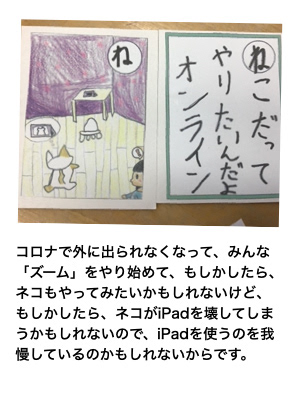 ね
ねこだって
やりたいんだよ
オンライン
コロナで外に出られなくなって、みんな
「ズーム」をやり始めて、もしかしたら、
ネコもやってみたいかもしれないけど、
もしかしたら、ネコがiPadを壊してしま
うかもしれないので、iPadを使うのを我
慢しているのかもしれないからです。